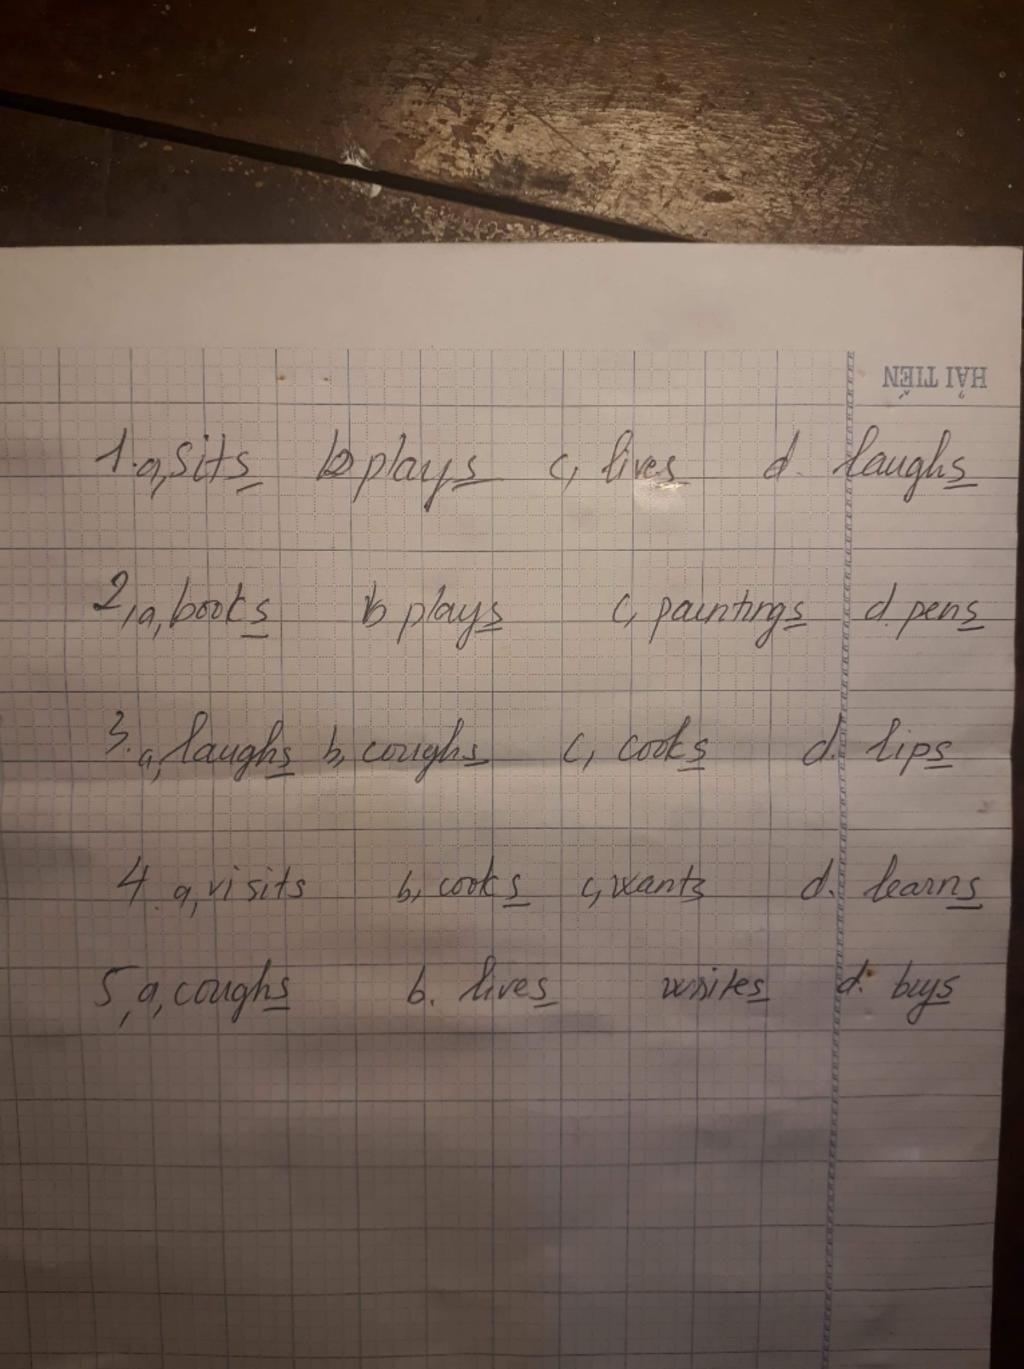 HẢI TIẾN
1. a, sits b plays c, lives d. laughs
2, a, books b plays c, paintings d. pens
3. a, laughs b, coughs c, cooks d. lips
4. a, visits b, cooks c, wants d. learns
5, a, coughs b. lives d. buys